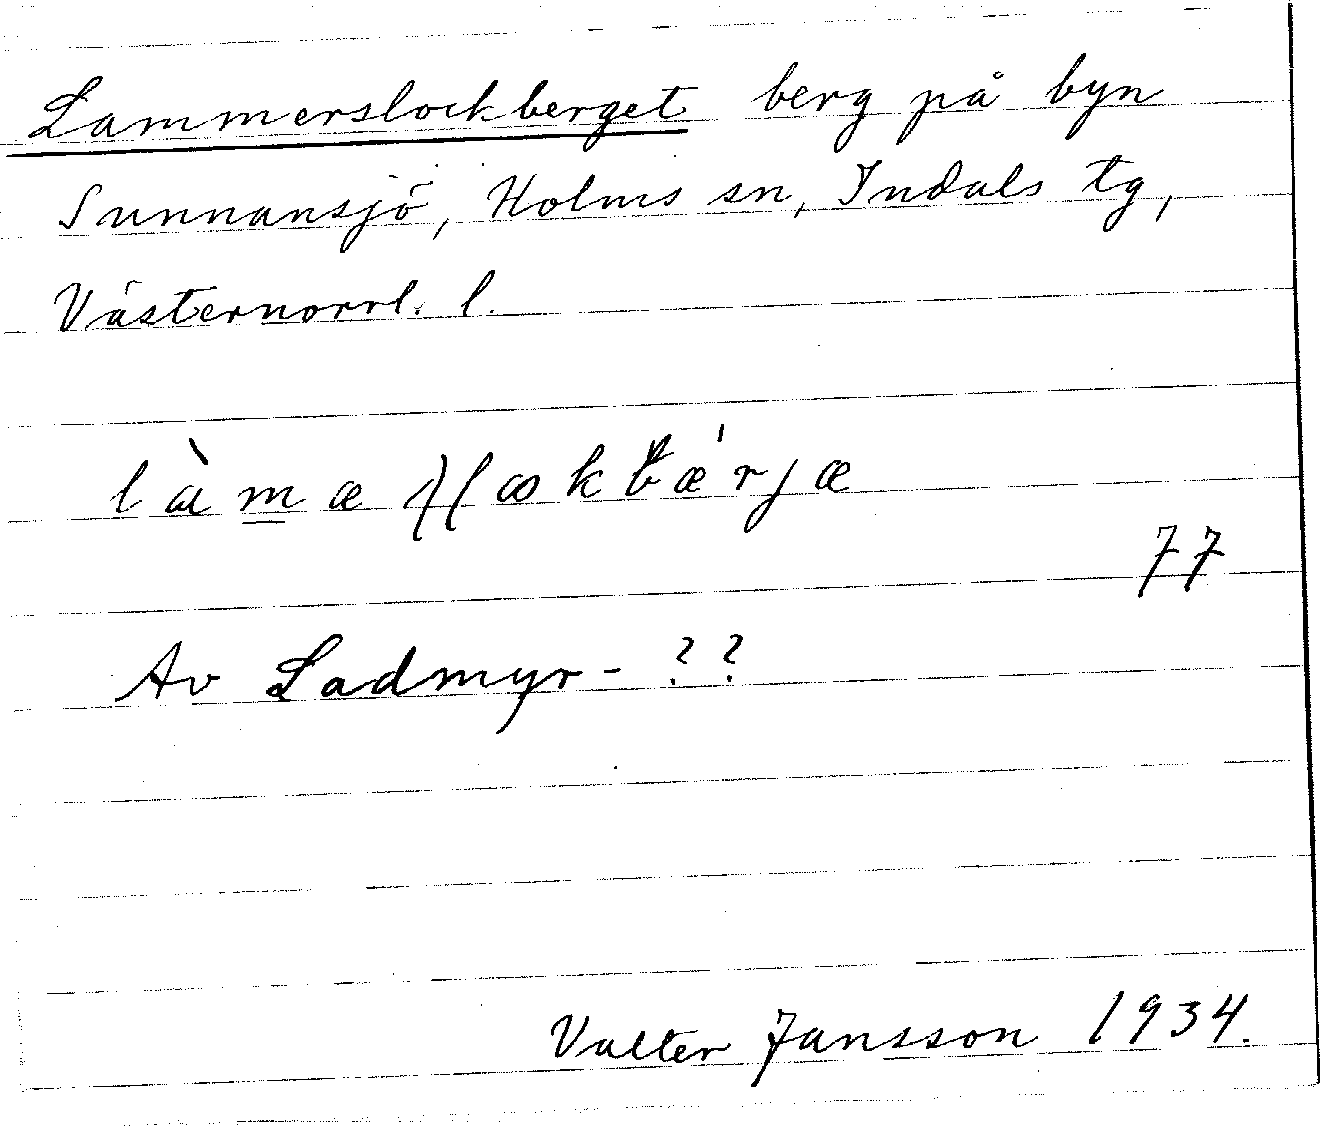 Lammerslockberget berg på byn
Sunnansjö, Holms sn, Indals tg,
Västernorrl. l.
77
Av Ladmyr- ??
Valter Jansson 1934.